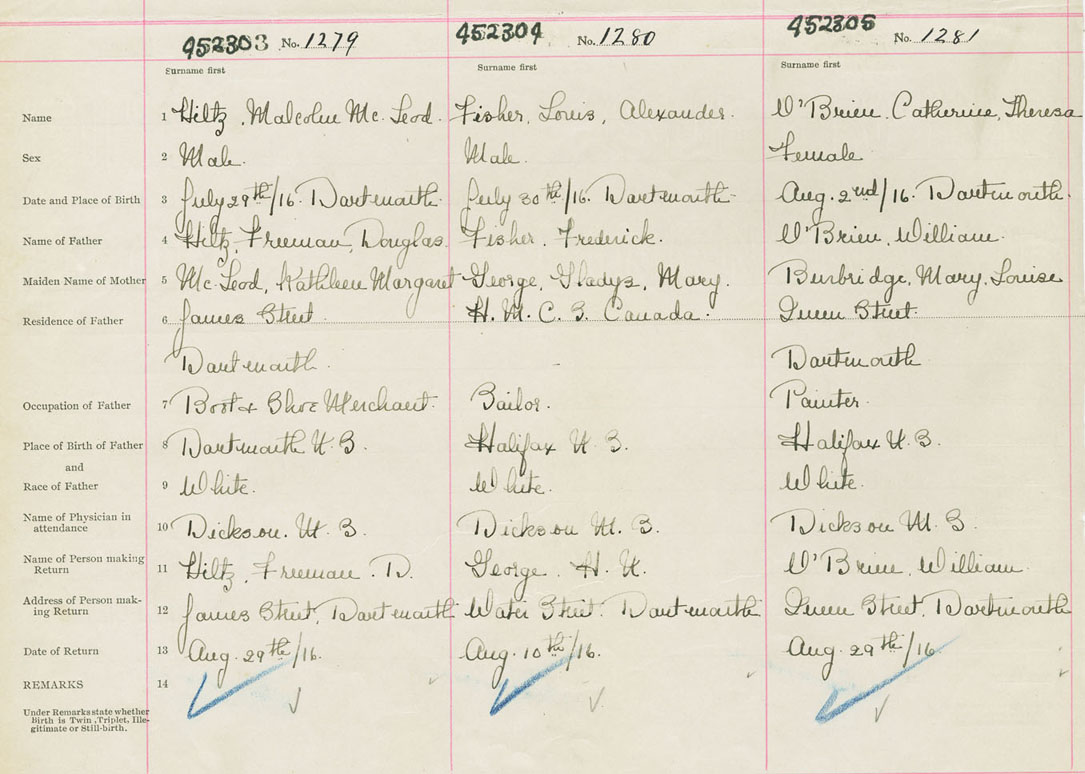 452303 No. 1279 452304 No. 1280 452305 No. 1281
Surname first Surname first Surname first
Name 1 Hiltz, Malcolm Mc. Leod. Fisher, Louis, Alexander. O'Brien, Catherine, Theresa
Sex 2 Male. Male. Female
Date and Place of Birth 3 July 29th/16. Dartmouth. July 30th/16. Dartmouth. Aug. 2nd/16. Dartmouth.
Name of Father 4 Hiltz, Freeman, Douglas Fisher, Frederick. O'Brien, William.
Maiden Name of Mother 5 Mc. Leod, Kathleen Margaret George, Gladys, Mary. Burbridge, Mary, Louise
Residence of Father 6 James Street. H. M. C. S. Canada. Queen Street.
Dartmouth. Dartmouth
Occupation of Father 7 Boot & Shoe Merchant. Sailor. Painter.
Place of Birth of Father 8 Dartmouth N. S. Halifax N. S. Halifax N. S.
and
Race of Father 9 White. White. White.
Name of Physician in
attendance 10 Dickson. M. B. Dickson M. B. Dickson M. B.
Name of Person making
Return 11 Hiltz, Freeman. D. George. H. N. O'Brien, William.
Address of Person mak-
ing Return 12 James Street, Dartmouth Water Street. Dartmouth Queen Street, Dartmouth
Date of Return 13 Aug. 29th/16. Aug. 10th/16. Aug. 29th/16.
REMARKS 14
Under Remarks state whether
Birth is Twin, Triplet, Ille-
gitimate or Still-birth.